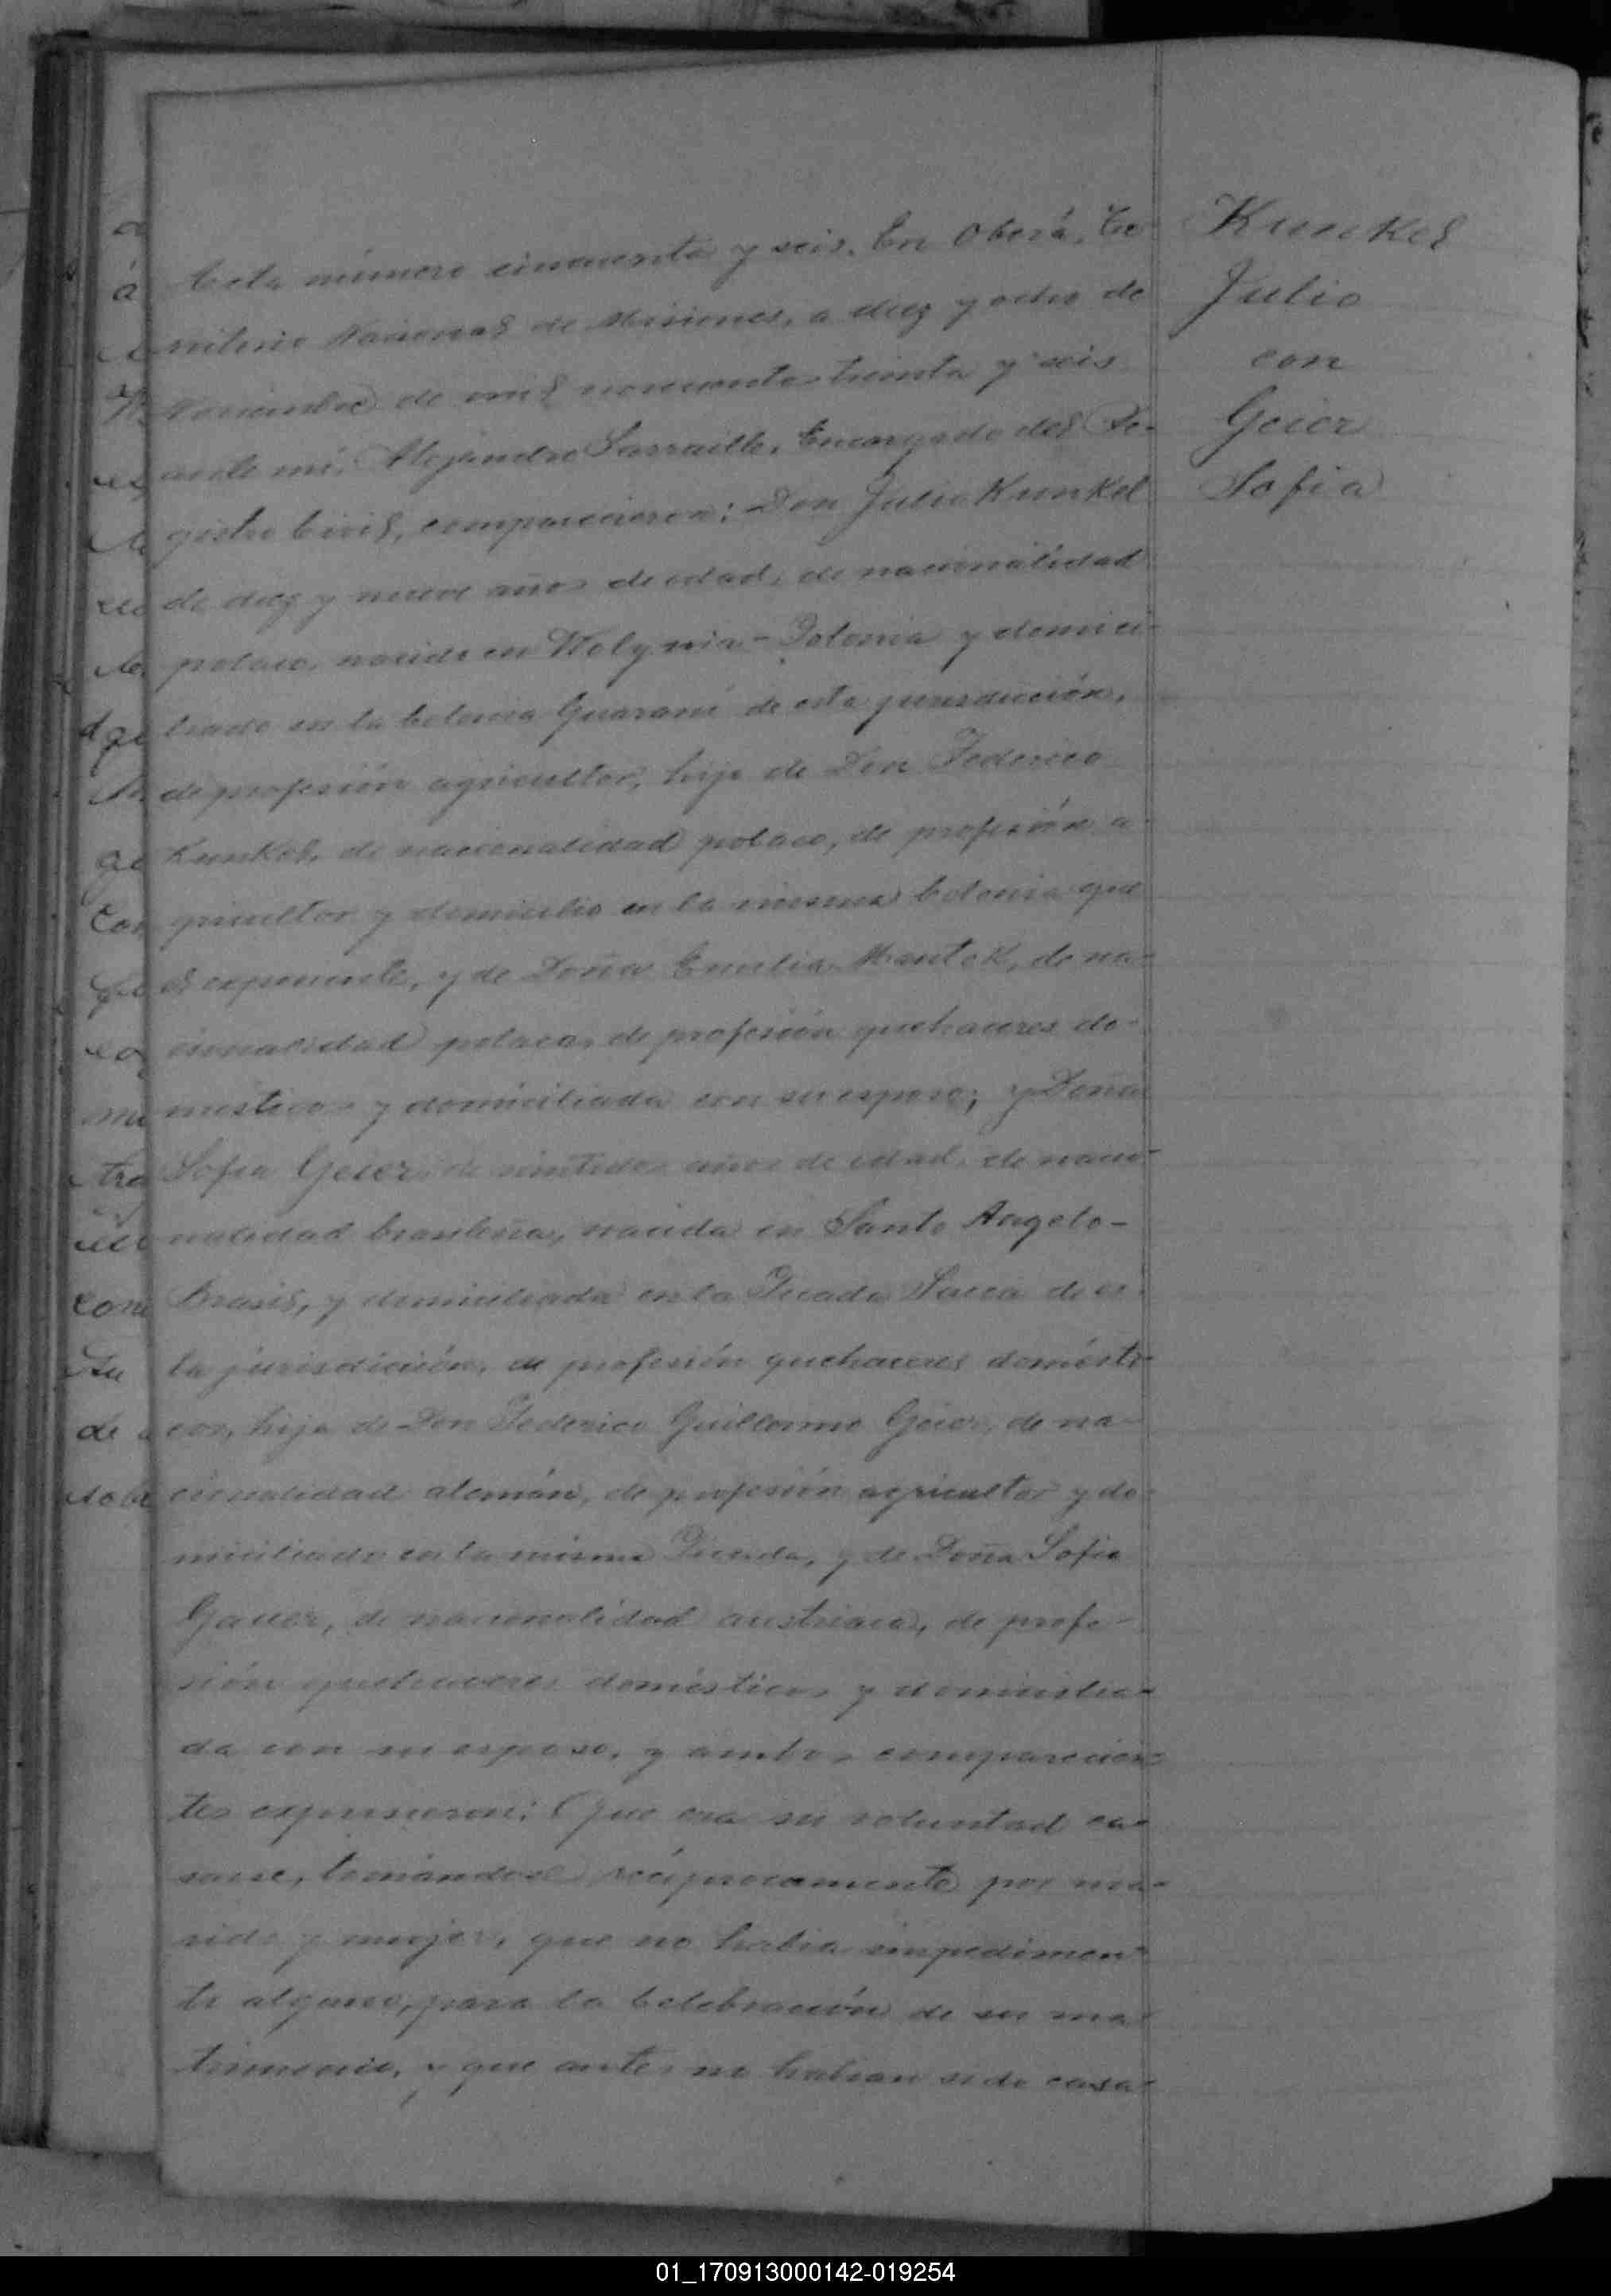 Acta número cincuenta y seis. En Oberá, Te-
rritorio Nacional de Misiones, a diez y ocho de
Noviembre de mil novecientos treinta y seis
ante mí, Alejandro Sarraille, Encargado del Re-
gistro Civil, comparecieron: Don Julio Kunkel
de diez y nueve años de edad, de nacionalidad
polaco, nacido en Wolynia - Polonia y domici-
liado en la Colonia Guaraní de esta jurisdicción,
de profesión agricultor, hijo de Don Federico
Kunkel, de nacionalidad polaco, de profesión a-
gricultor y domicilio en la misma Colonia que
el exponente, y de Doña Emilia Mantek, de na-
cionalidad polaca, de profesión quehaceres do-
mésticos y domiciliada con su esposo; y Doña
Sofia Geier, de veintidos años de edad, de nacio-
nalidad brasileña, nacida en Santo Angelo -
Brasil, y domiciliada en la Picada Sueca de es-
ta jurisdicción, de profesión quehaceres domésti-
cos, hija de Don Federico Guillermo Geier, de na-
cionalidad alemán, de profesión agricultor y do-
miciliado en la misma Picada, y de Doña Sofia
Gauer, de nacionalidad austriaca, de profe-
sión quehaceres domésticos y domicilia-
da con su esposo, y ambos comparecien-
tes expusieron: Que era su voluntad ca-
sarse, tomándose recíprocamente por ma-
rido y mujer, que no habia impedimen-
to alguno, para la celebración de su ma-
trimonio, y que antes no habian sido casa-
Kunkel
Julio
con
Geier
Sofia
01_170913000142-019254